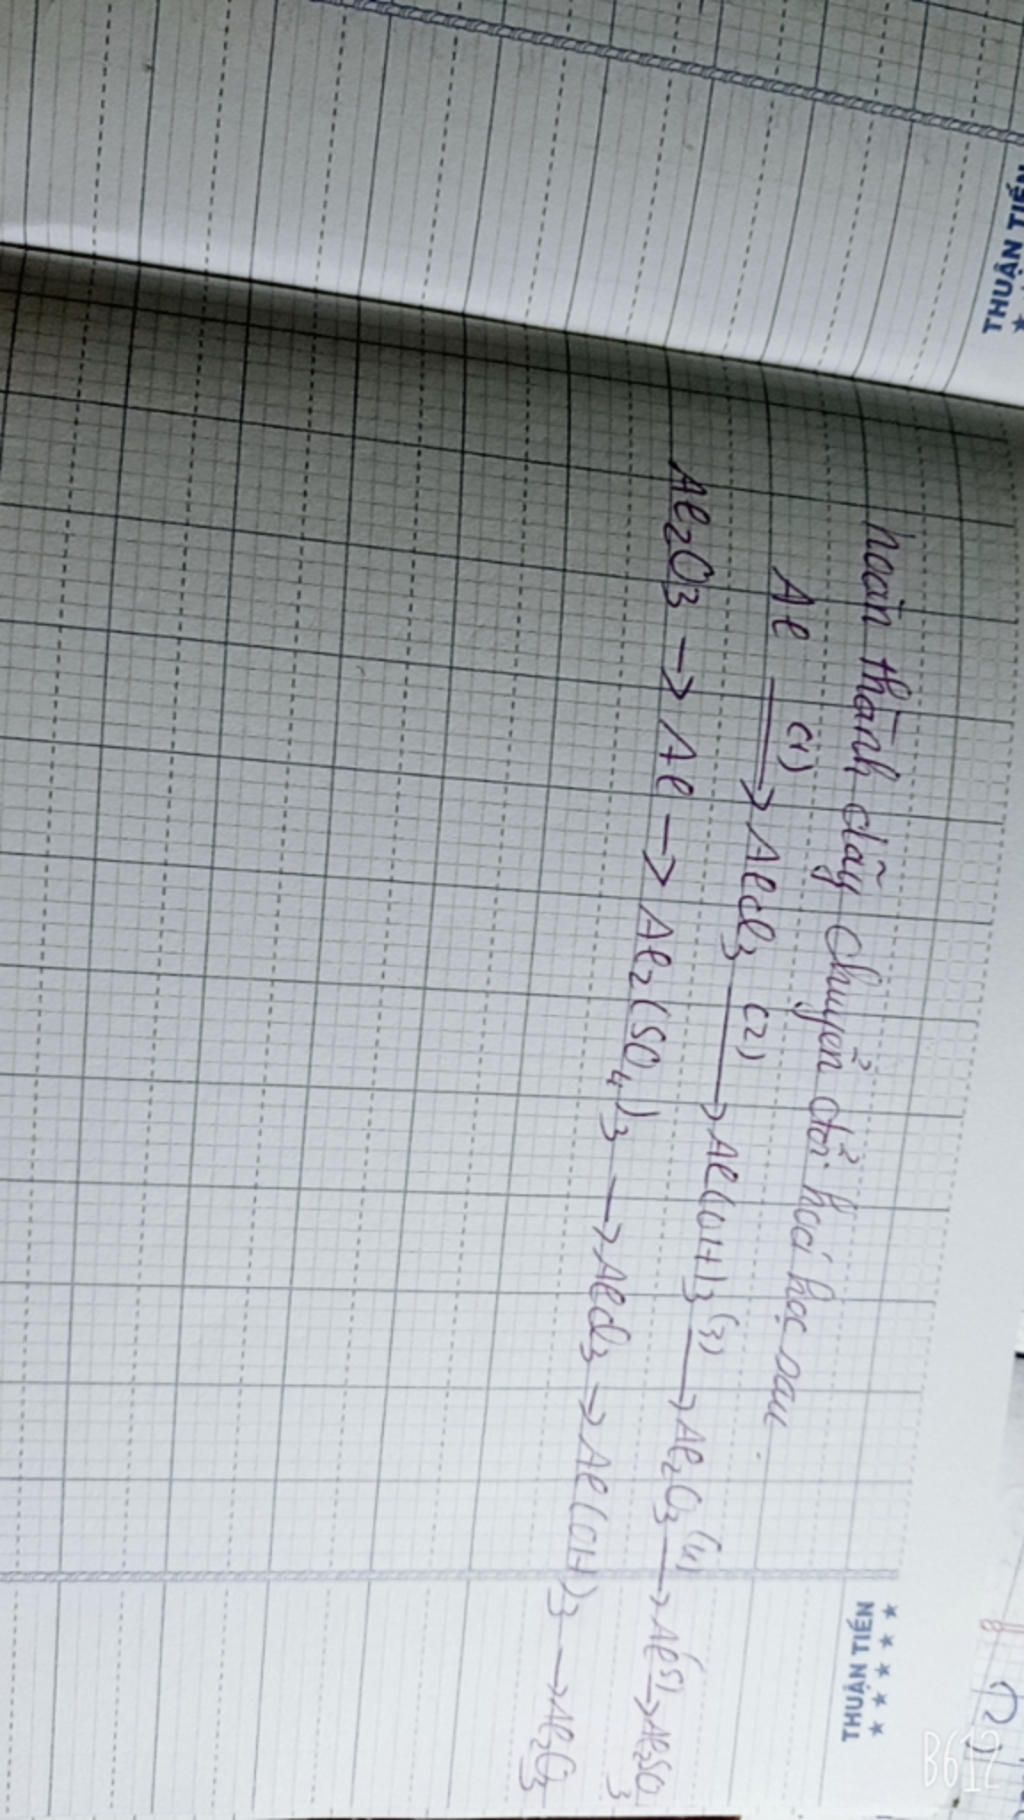 THUẬN TIẾN
hoàn thành dãy chuyển đổi hoá học sau.
Al (1)→ AlCl3 (2)→ Al(OH)3 (3)→ Al2O3 (4)→ Al (5)→ Al2SO
3
Al2O3 → Al → Al2(SO4)3 → AlCl3 → Al(OH)3 → Al2O3
THUẬN TIẾN
B612